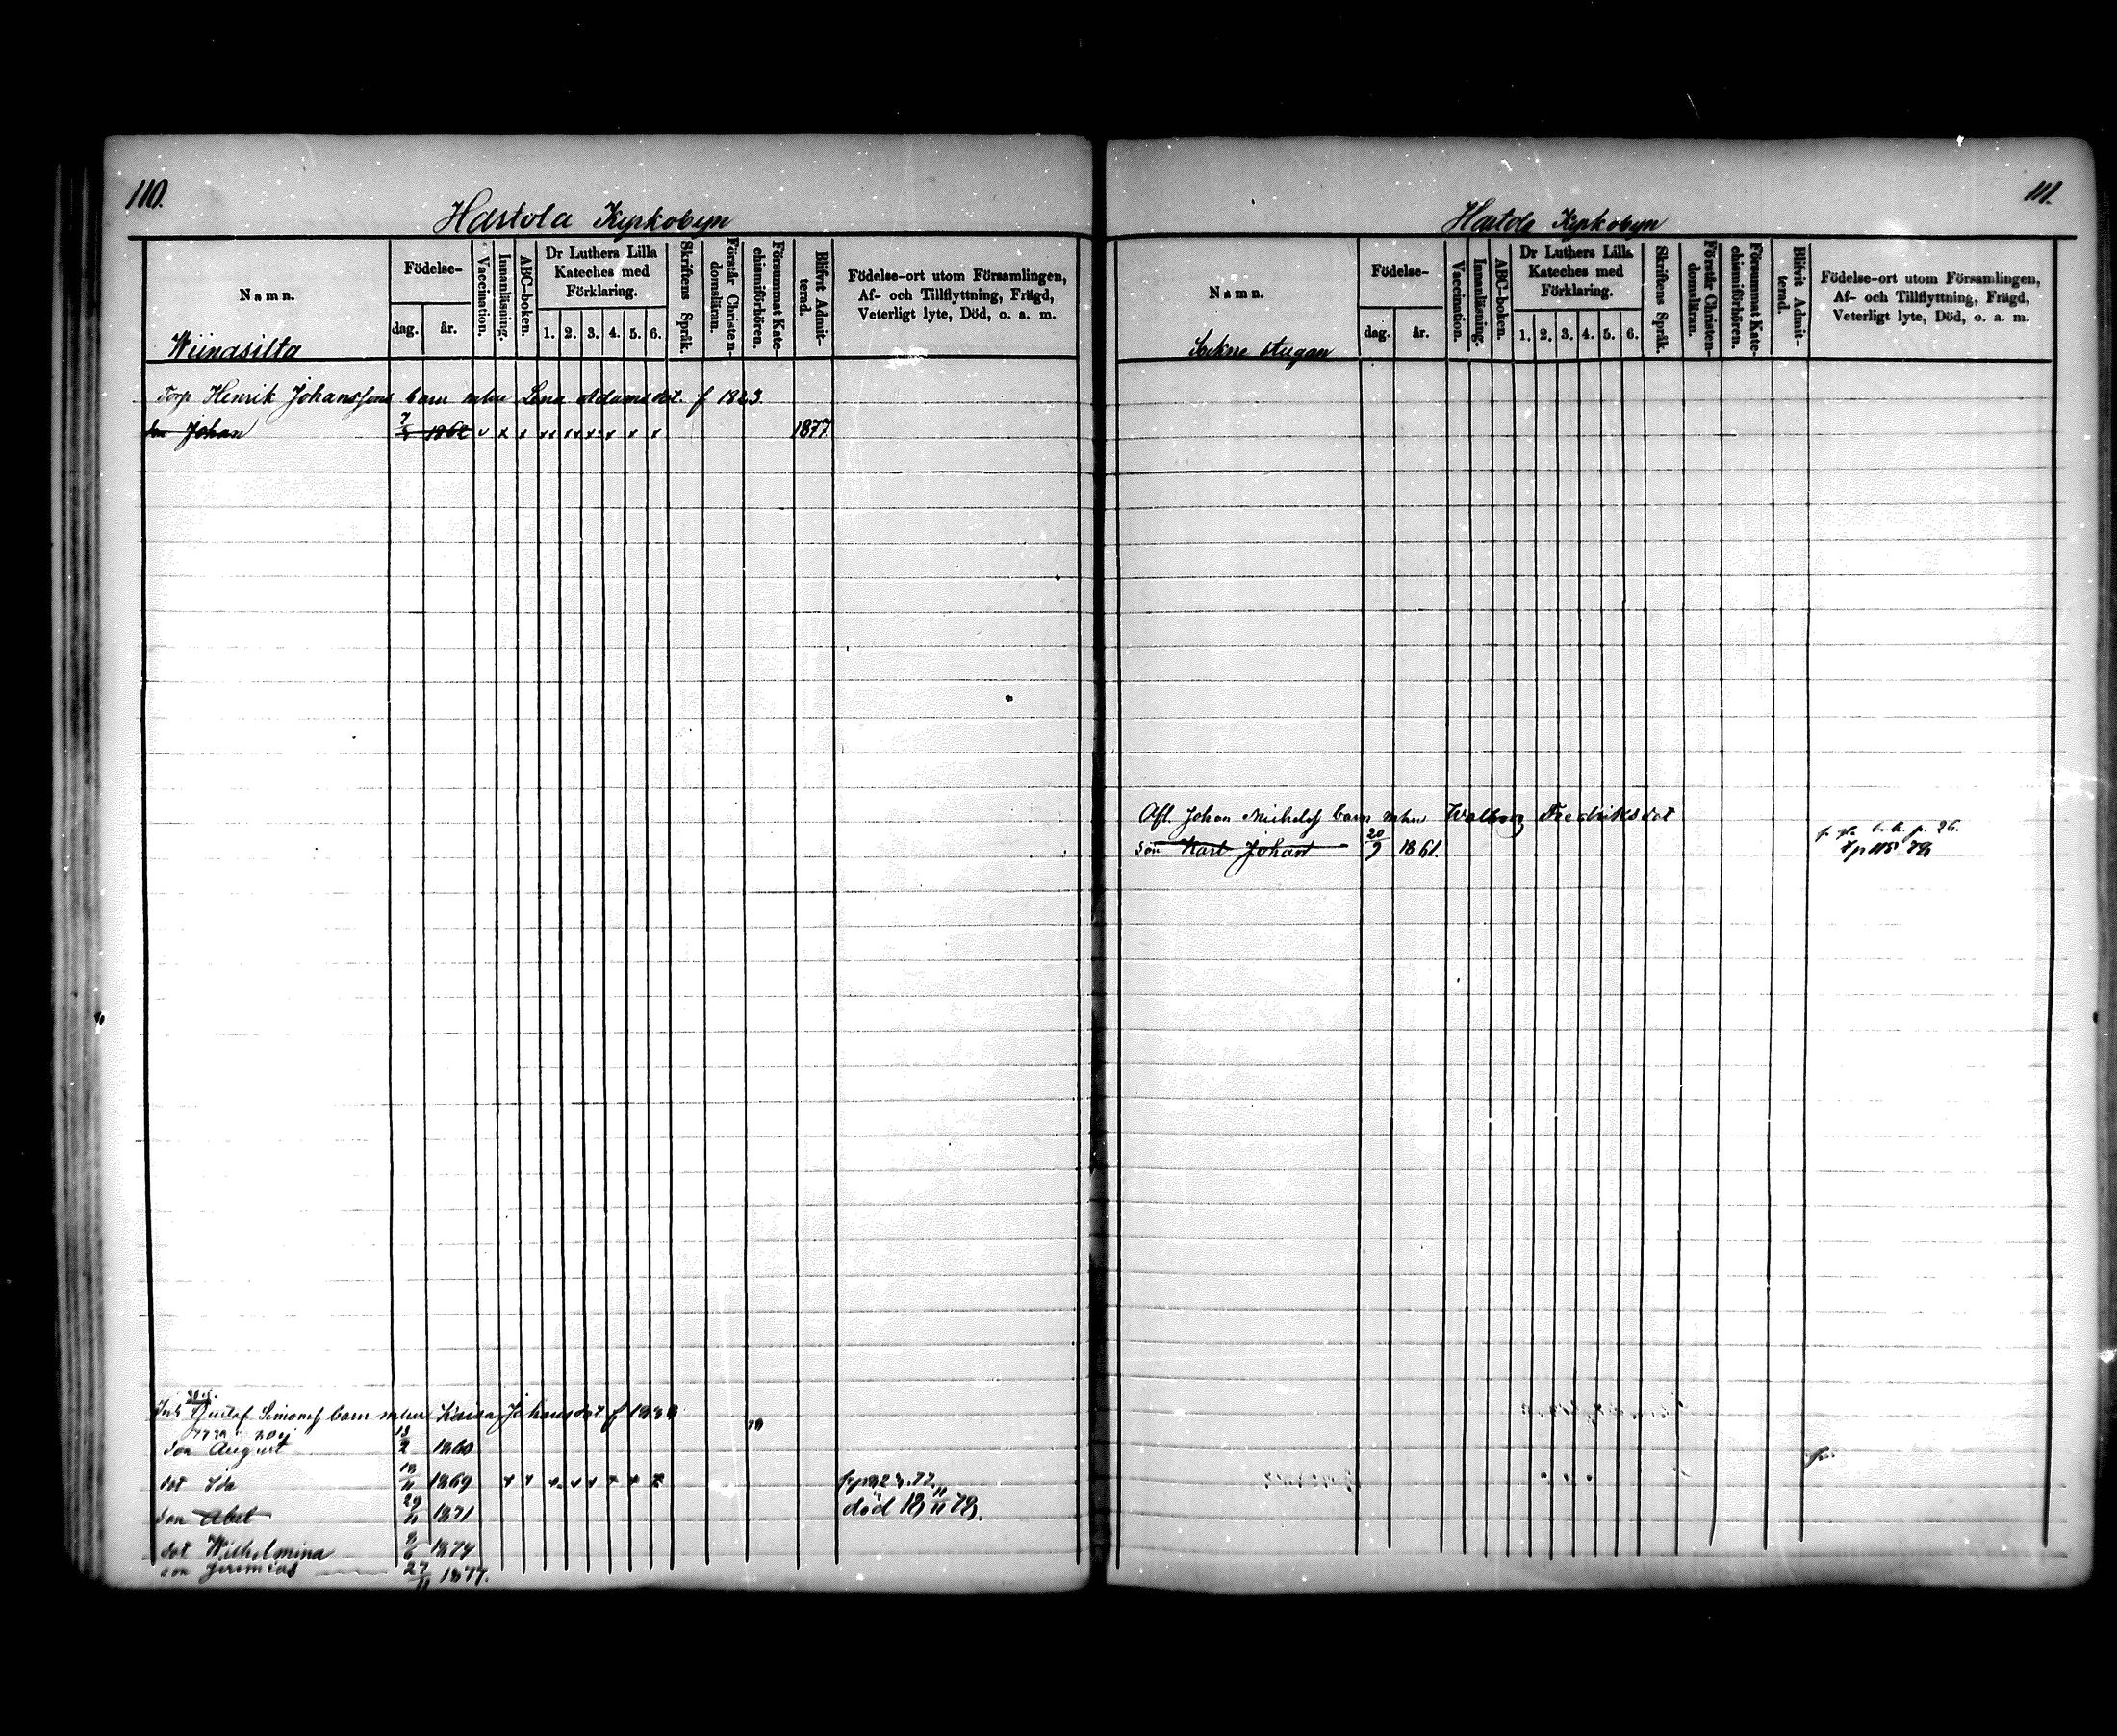 110.
Hastola Kyrkobyn
Namn.
Födelse-
dag.
år.
Vaccination.
Innanläsning.
ABC-boken.
Dr Luthers Lilla
Kateches med
Förklaring.
1. 2. 3. 4. 5. 6.
Skriftens Språk.
Förstår Christen-
domsläran.
Försummat Kate-
chismiförhören.
Blifvit Admit-
terad.
Födelse-ort utom Församlingen,
Af- och Tillflyttning, Frägd,
Veterligt lyte, Död, o. a. m.
Wiinasilta
Torp Henrik Johanssons barn mhu Lena Adamsdot. f 1823.
son Johan 1862 1877
Gustaf Simonss barn mhu Kaisa Johansdot f
son August 13/2 1860
dot Ida 1869
son Abel 29/11 1871 död 18 11/11 79.
dot Wilhelmina 1874
son Jeremias 27/11 1877.
111.
Hastola Kyrkobyn
Namn.
Födelse-
dag.
år.
Vaccination.
Innanläsning.
ABC-boken.
Dr Luthers Lilla
Kateches med
Förklaring.
1. 2. 3. 4. 5. 6.
Skriftens Språk.
Förstår Christen-
domsläran.
Försummat Kate-
chismiförhören.
Blifvit Admit-
terad.
Födelse-ort utom Församlingen,
Af- och Tillflyttning, Frägd,
Veterligt lyte, Död, o. a. m.
Sokne stugan
Afl. Johan Michelss barn mhu Walborg Fredriksdot
p. 26.
son Karl Johan 20/9 1861.